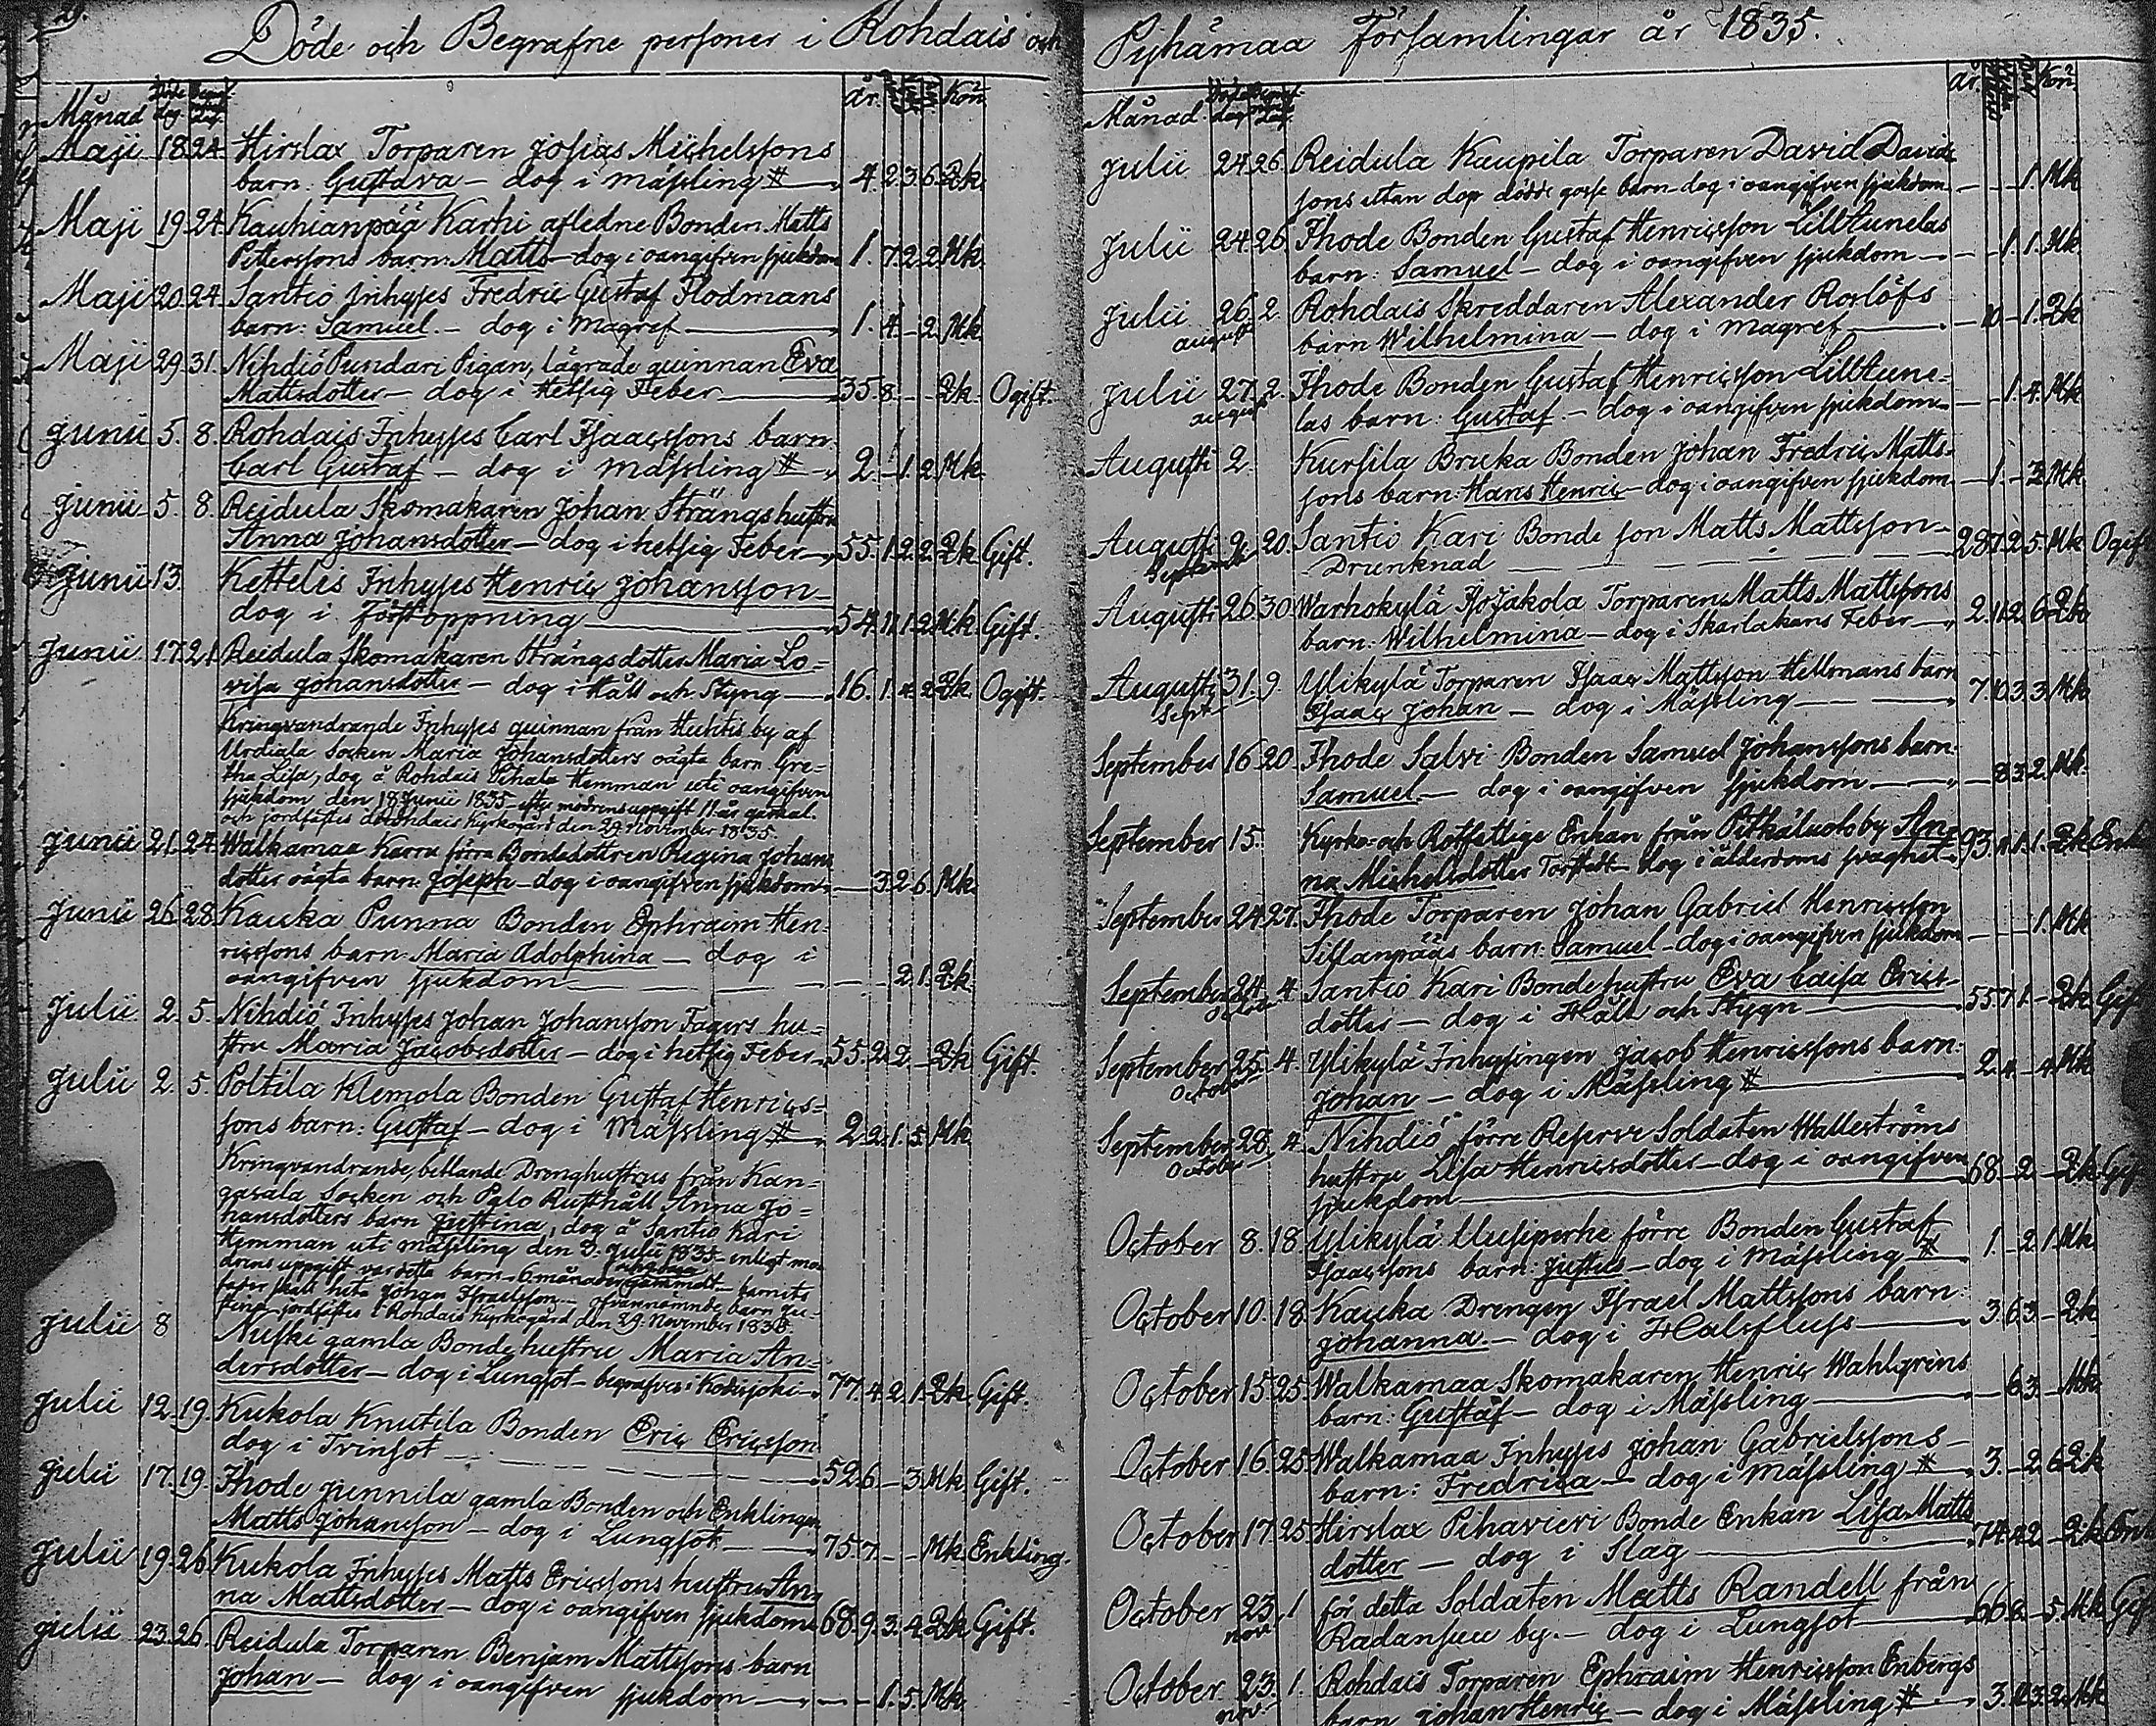 29.
Döde och Begrafne personer i Rohdais och
Månad Döde dag Begraf. dag. år. Kön
Maji 18 24 Hirslax Torparen Josias Michelssons
barn: Gustava — dog i mässling # 4. 2 3 6 Qk.
Maji 19 24 Kauhianpää Karhi afledne Bonden Matts
Pettersons barn: Matts — dog i oangifven sjukdom 1. 7 2 2 Mk.
Maji 20 24. Santio Inhyses Fredric Gustaf Flodmans
barn: Samuel. — dog i Magref 1. 4 — 2 Mk
Maji 29 31. Nihdiö Pundari Pigan, lägrade quinnan Eva
Mattsdotter — dog i Hetsig Feber 35 8 — — Qk. Ogift.
Junii 5. 8. Rohdais Inhyses Carl Isaacssons barn
Carl Gustaf — dog i mässling # 2. — 1. 2 Mk
Junii 5. 8. Reidula Skomakaren Johan Strängs hustru
Anna Johansdotter — dog i hetsig Feber 55. 1. 2 2 Qk Gift.
Junii 13. Kettelis Inhyses Henric Johansson —
dog i Förstoppning 54. 11. 1. 2 Mk Gift.
Junii 17. 21. Reidula Skomakaren Strängs dotter Maria Lo=
visa Johansdotter — dog i Håll och Styng 16. 1. 4. 2 Qk. Ogift.
Kringvandrande Inhyses quinnan från Huhtis by af
Urdiala Socken Maria Johansdotters oägta barn Gre=
tha Lisa, dog å Rohdais Pihala Hemman uti oangifven
sjukdom den 18 Junii 1835 — efter modrens uppgift 11 år gammal.
och jordfästes å Rohdais Kyrkogård den 29 November 1835.
Junii 21. 24 Walkamaa Karru förra Bondedottren Regina Johans
dotter oägta barn: Joseph — dog i oangifven sjukdom — 3 2 6 Mk
Junii 26 28 Kauka Punna Bonden Ephraim Hen=
ricssons barn: Maria Adolphina — dog i
oangifven sjukdom — — 2 1. Qk
Julii 2. 5. Nihdiö Inhyses Johan Johansson Fagers hu=
stru Maria Jacobsdotter — dog i hetsig Feber 55. 2. 2. — Qk Gift.
Julii 2. 5. Poltila Klemola Bonden Gustaf Henrics=
sons barn: Gustaf — dog i Mässling # 2 2 1. 5 Mk
Kringvandrande, betlande Drenghustrus från Kan=
gasala Socken och Palo Rusthåll Anna Jo=
hansdotters barn Justina, dog å Santio Kari
Hemman uti mässling den 3. Julii 1835 — enligt mo
drens uppgift var detta barn 6 månader gammalt — barnets
fader skall heta Johan Israelsson — ofvannämnde barn Ju=
stina jordfästes i Rohdais Kyrkogård den 29. November 1835.
Julii 8 Nuski gamla Bondehustru Maria An=
dersdotter — dog i Lungsot — begrafves i Kodisjoki 77. 4. 2. 1. Qk. Gift.
Julii 12. 19. Kukola Knutila Bonden Eric Ericsson
dog i Tvinsot 52 6 — 3. Mk Gift.
Julii 17. 19. Ihode Junnila gamla Bonden och Enklingen
Matts Johansson — dog i Lungsot 75. 7 — — Mk Enkling.
Julii 19. 26 Kukola Inhyses Matts Ericssons hustru An=
na Mattsdotter — dog i oangifven sjukdom 68. 9. 3. 4. Qk Gift.
Julii 23. 26. Reidula Torparen Benjam Mattssons barn
Johan — dog i oangifven sjukdom — — 1. 5 Mk
Pyhämaa Församlingar år 1835.
Månad. Döde dag Begraf dag år. Kön
Julii 24 26. Reidula Kaupila Torparen David Davids
sons utan dop dödde gosse barn — dog i oangifven sjukdom — — — 1. Mk
Julii 24 26. Ihode Bonden Gustaf Henricsson Lilltunelas
barn: Samuel — dog i oangifven sjukdom — — 1. 1. Mk
Julii 26. 2. august Rohdais Skreddaren Alexander Roslöfs
barn Wilhelmina — dog i magref — 10 — 1. Qk
Julii 27. 2. august Ihode Bonden Gustaf Henricsson Lilltune=
las barn: Gustaf. — dog i oangifven sjukdom — — 1. 4. Mk
Augusti 2. Kursila Bruka Bonden Johan Fredric Matts=
sons barn: Hans Henric — dog i oangifven sjukdom — 1. — 3 Mk.
Augusti 9. 20. Septemb Santio Kari Bonde son Matts Mattsson —
Drunknad 28 7. 2 5. Mk Ogift
Augusti 26 30 Warhokylä Isojakola Torparen Matts Mattssons
barn: Wilhelmina — dog i Skarlakans Feber 2. 11. 2 6 Qk
Augusti 31. 9. Sept Ylikylä Torparen Isaac Mattsson Hellmans barn
Isaac Johan — dog i Mässling 7. 10. 3 3 Mk
September 16 20. Ihode Salvi Bonden Samuel Johanssons barn
Samuel. — dog i oangifven sjukdom — 8 3. 2. Mk.
September 15. Kyrko- och Rotfattige Enkan från Pitkäluoto by An=
na Michelsdotter Torstedt — dog i ålderdoms svaghet 93. 11. 1. 1. Qk Enka
September 24 27. Ihode Torparen Johan Gabriel Henricsson
Sillanpääs barn: Samuel — dog i oangifven sjukdom — — — 1. Mk
September 24. 4. Octob Santio Kari Bondehustru Eva Caisa Erics=
dotter — dog i Håll och Stygn 55 7 1. — Qk Gift
September 25. 4. October Ylikylä Inhysingen Jacob Henricssons barn:
Johan — dog i Mässling # 2. 4. — 4 Mk
September 28. 4. October Nihdiö förre Reserve Soldaten Wallströms
hustru Lisa Henricsdotter — dog i oangifven
sjukdom 68 — 2. — Qk Gift
October 8. 18. Ylikylä Uusiperhe förre Bonden Gustaf
Isaacssons barn: Justus — dog i Mässling # 1. — 2. 1. Mk
October 10. 18. Kauka Drengen Israel Mattssons barn:
Johanna. — dog i Halsfluss 3 6 3. — Qk
October 15. 25 Walkamaa Skomakaren Henric Wahlgrens
barn: Gustaf — dog i Mässling — 6 3. — Mk
October 16. 25 Walkamaa Inhyses Johan Gabrielssons —
barn: Fredrica — dog i mässling # 3. — 2. 6 Qk
October 17. 25 Hirslax Pihavieri Bonde Enkan Lisa Matts
dotter — dog i Slag 74. 4 2. — Qk Enk
October 23. 1 nov. för detta Soldaten Matts Randell från
Radansuu by. — dog i Lungsot 66 2. — 5. Mk Gift
October 23. 1. nov. Rohdais Torparen Ephraim Henricsson Enbergs
barn Johan Henric — dog i Mässling # 3. 11. 3. 2. Mk